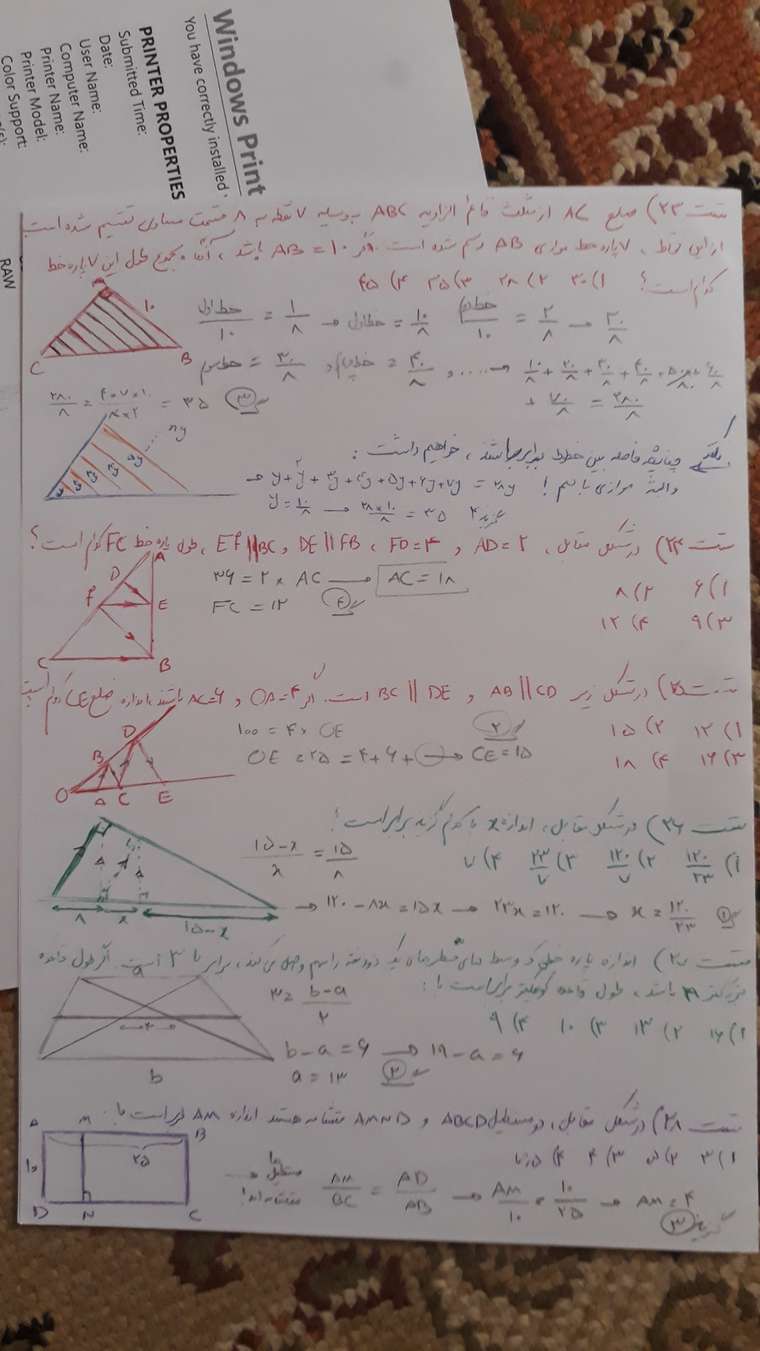 Windows Print
You have correctly installed
PRINTER PROPERTIES
Submitted Time:
Date:
User Name:
Computer Name:
Printer Name:
Printer Model:
Color Support:
RAW
تست ۲۳) ضلع AC از مثلث قائم الزاویه ABC به وسیله ۷ نقطه به ۸ قسمت مساوی تقسیم شده است
از این نقاط، ۷ پاره خط موازی AB رسم شده است. اگر AB = ۱۰ باشد، آنگاه مجموع طول این ۷ پاره خط
کدام است؟ ۱) ۳۰ ۲) ۲۸ ۳) ۳۵ ۴) ۴۵
A ۱۰ C B
خط اول / ۱۰ = ۱/۸ → خط اول = ۱۰/۸ خط دوم / ۱۰ = ۲/۸ → ۲۰/۸
خط سوم = ۳۰/۸ , ۴۰/۸ , .... → ۱۰/۸ + ۲۰/۸ + ۳۰/۸ + ۴۰/۸ + ۵۰/۸ + ۶۰/۸
+ ۷۰/۸ = ۲۸۰/۸
۲۸۰/۸ = = ۳۵ ۳
نکته چنانچه فاصله بین خطوط برابر باشند، خواهیم داشت:
→ y + ۲y + ۳y + ۴y + ۵y + ۶y + ۷y = ۲۸y
y = ۱۰/۸ → ۲۸×۱۰/۸ = ۳۵ گزینه ۳
تست ۲۴) در شکل مقابل، AD = ۲ , FD = ۴ , DE || FB , EF || BC، طول پاره خط FC کدام است؟
۱) ۶ ۲) ۸
۳) ۹ ۴) ۱۲
A D F E C B
۳۶ = ۲ × AC → AC = ۱۸
FC = ۱۲ ۴
تست ۲۵) در شکل زیر AB || CD و BC || DE است. اگر OA = ۴ و AC = ۶ باشند، اندازه ضلع CE کدام است
۱) ۱۲ ۲) ۱۵
۳) ۱۶ ۴) ۱۸
O A C E B D
۱۰۰ = ۴ × OE
OE = ۲۵ = ۴ + ۶ + → CE = ۱۵ ۲
تست ۲۶) در شکل مقابل، اندازه x با کدام گزینه برابر است؟
۱) ۱۲۰/۲۳ ۲) ۱۲۰/۷ ۳) ۲۳/۷ ۴) ۷
۱۵-x / x = ۱۵/۸
→ ۱۲۰ - ۸x = ۱۵x → ۲۳x = ۱۲۰ → x = ۱۲۰/۲۳ ۱
۸ x ۱۵-x
تست ۲۷) اندازه پاره خطی که وسط های قطرهای یک ذوزنقه را بهم وصل می کند، برابر با ۳ است. اگر طول قاعده
بزرگتر ۱۹ باشد، طول قاعده کوچکتر برابر است با:
۱) ۱۶ ۲) ۱۳ ۳) ۱۰ ۴) ۹
a b
۳ = b-a / ۲
b - a = ۶ → ۱۹ - a = ۶
a = ۱۳ ۲
تست ۲۸) در شکل مقابل، دو مستطیل ABCD و AMND متشابه هستند اندازه AM برابر است با:
۱) ۳ ۲) ۵ ۳) ۴ ۴) ۷٫۵
A M B ۲۵ ۱۰ D N C
مستطیل ها متشابه اند! → AM/BC = AD/AB → AM/۱۰ = ۱۰/۲۵ → AM = ۴
گزینه ۳